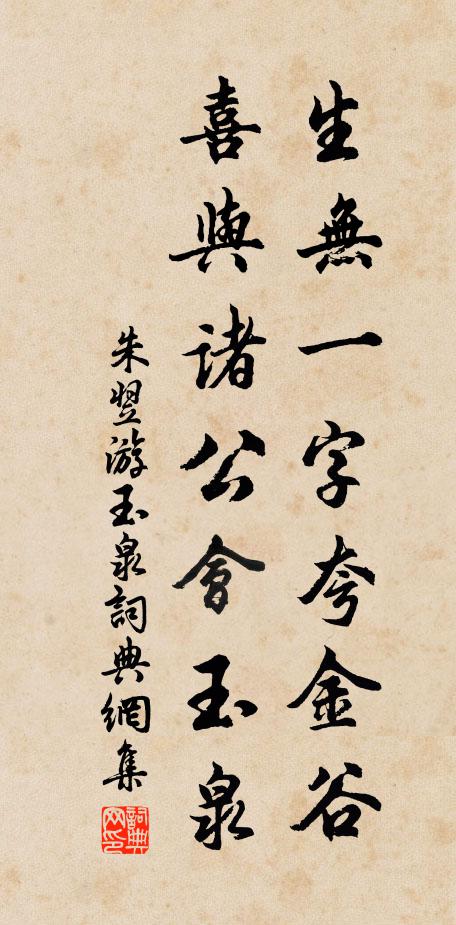 生無一字夸金谷
喜與諸公會玉泉
朱翌游玉泉詞典網集
詞典網印